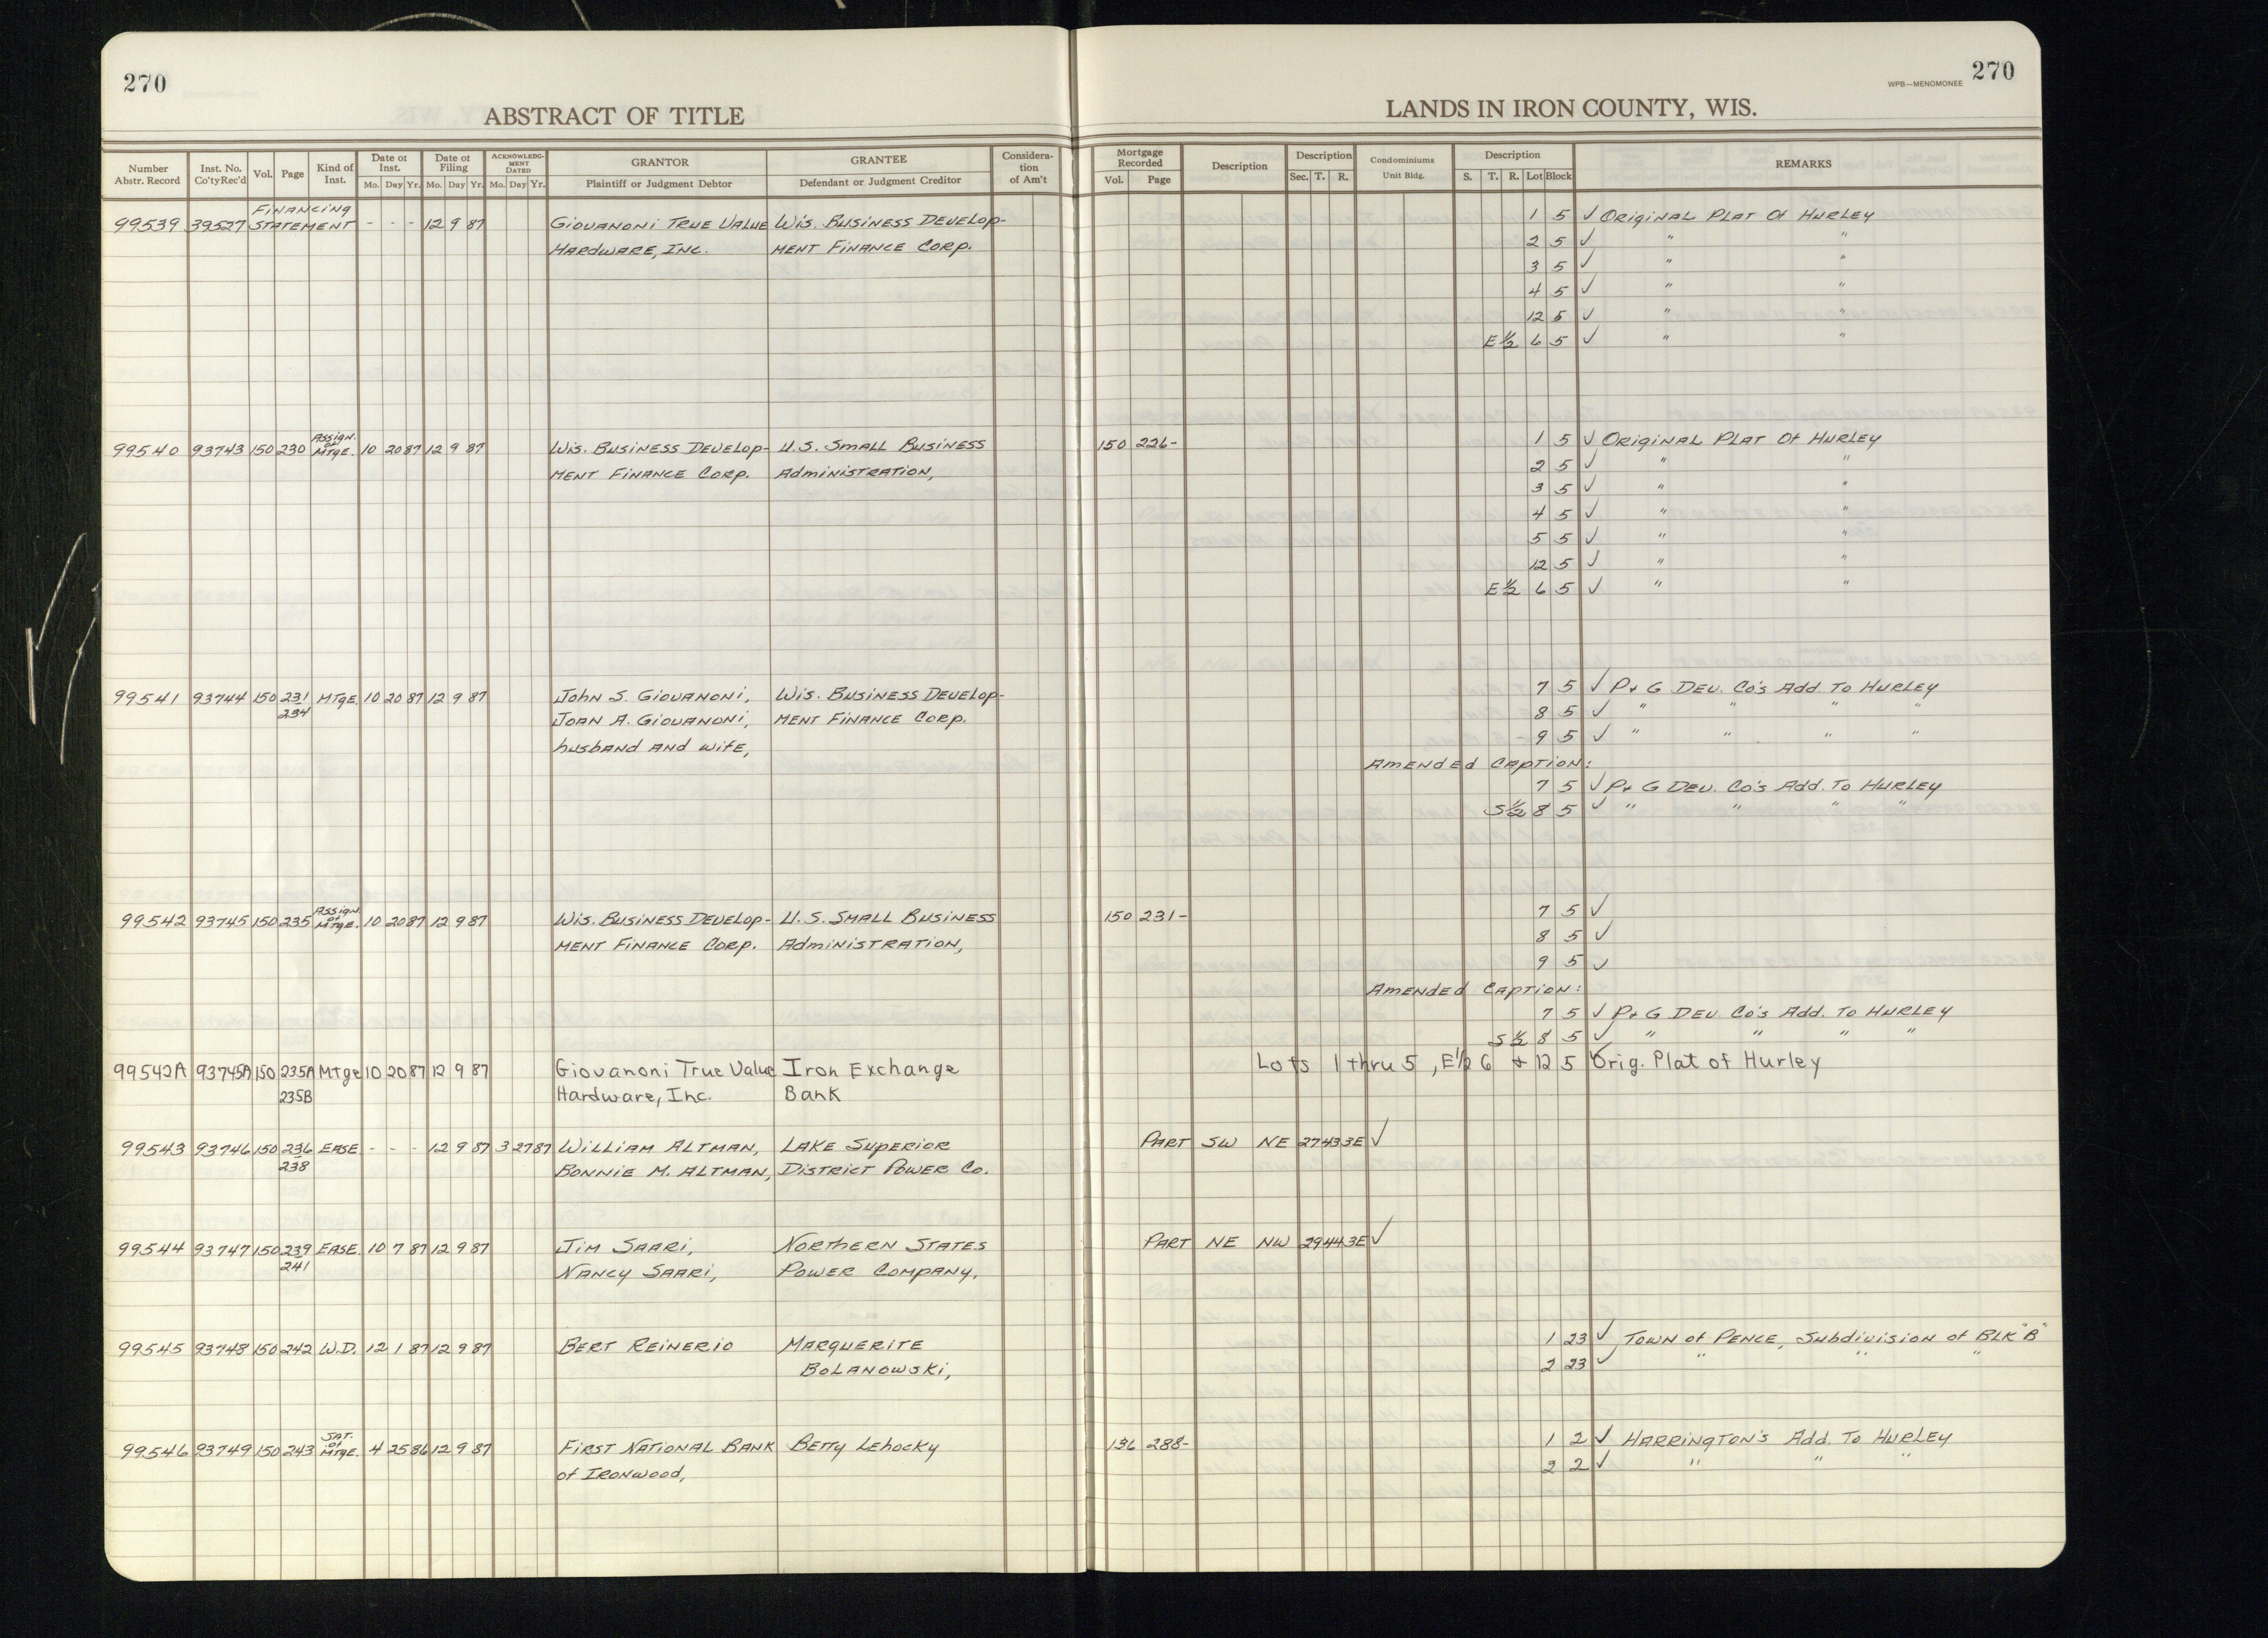 270
270
WPB—MENOMONEE
ABSTRACT OF TITLE
LANDS IN IRON COUNTY, WIS.
Number Abstr. Record
Inst. No. Co'ty Rec'd
Vol.
Page
Kind of Inst.
Date of Inst.
Mo. Day Yr.
Date of Filing
Mo. Day Yr.
ACKNOWLEDGMENT DATED
Mo. Day Yr.
GRANTOR
Plaintiff or Judgment Debtor
GRANTEE
Defendant or Judgment Creditor
Consideration of Am't
Mortgage Recorded
Vol. Page
Description
Description
Sec. T. R.
Condominiums
Unit Bldg.
Description
S. T. R. Lot Block
REMARKS
99539 39527 FINANCING STATEMENT - - - 12 9 87 GIOVANONI TRUE VALUE WIS. BUSINESS DEVELOP- 1 5 ✓ ORIGINAL PLAT Of HURLEY
HARDWARE, INC. MENT FINANCE CORP. 2 5 ✓ " "
3 5 ✓ " "
4 5 ✓ " "
12 5 ✓ " "
E½ 6 5 ✓ " "
99540 93743 150 230 ASSIGN. of MTGE. 10 20 87 12 9 87 WIS. BUSINESS DEVELOP- U.S. SMALL BUSINESS 150 226- 1 5 ✓ ORIGINAL PLAT Of HURLEY
MENT FINANCE CORP. ADMINISTRATION, 2 5 ✓ " "
3 5 ✓ " "
4 5 ✓ " "
5 5 ✓ " "
12 5 ✓ " "
E½ 6 5 ✓ " "
99541 93744 150 231 MTGE. 10 20 87 12 9 87 JOHN S. GIOVANONI, WIS. BUSINESS DEVELOP- 7 5 ✓ P+ G DEV. CO'S ADD. TO HURLEY
234 JOAN A. GIOVANONI, MENT FINANCE CORP. 8 5 ✓ " " " "
husband AND WIFE, 9 5 ✓ " " " "
AMENDED CAPTION:
7 5 ✓ P+ G DEV. CO'S ADD. TO HURLEY
S½ 8 5 ✓ " " " "
99542 93745 150 235 ASSIGN. of MTGE. 10 20 87 12 9 87 WIS. BUSINESS DEVELOP- U.S. SMALL BUSINESS 150 231- 7 5 ✓
MENT FINANCE CORP. ADMINISTRATION, 8 5 ✓
9 5 ✓
AMENDED CAPTION:
7 5 ✓ P+ G DEV CO'S ADD. TO HURLEY
S½ 8 5 ✓ " " " "
99542A 93745A 150 235A Mtge 10 20 87 12 9 87 Giovanoni True Value Iron Exchange Lots 1 thru 5, E½ 6 + 12 5 ✓ Orig. Plat of Hurley
235B Hardware, Inc. Bank
99543 93746 150 236 EASE. - - - 12 9 87 3 27 87 WILLIAM ALTMAN, LAKE SUPERIOR PART SW NE 27 43 3E ✓
238 BONNIE M. ALTMAN, DISTRICT POWER CO.
99544 93747 150 239 EASE. 10 7 87 12 9 87 JIM SAARI, NORTHERN STATES PART NE NW 29 44 3E ✓
241 NANCY SAARI, POWER COMPANY,
99545 93748 150 242 W.D. 12 1 87 12 9 87 BERT REINERIO MARGUERITE 1 23 ✓ TOWN of PENCE, Subdivision of BLK "B"
BOLANOWSKI, 2 23 ✓ " " "
99546 93749 150 243 SAT. of MTGE. 4 25 86 12 9 87 FIRST NATIONAL BANK BETTY LEHOCKY 136 288- 1 2 ✓ HARRINGTON'S ADD. TO HURLEY
of IRONWOOD, 2 2 ✓ " " "